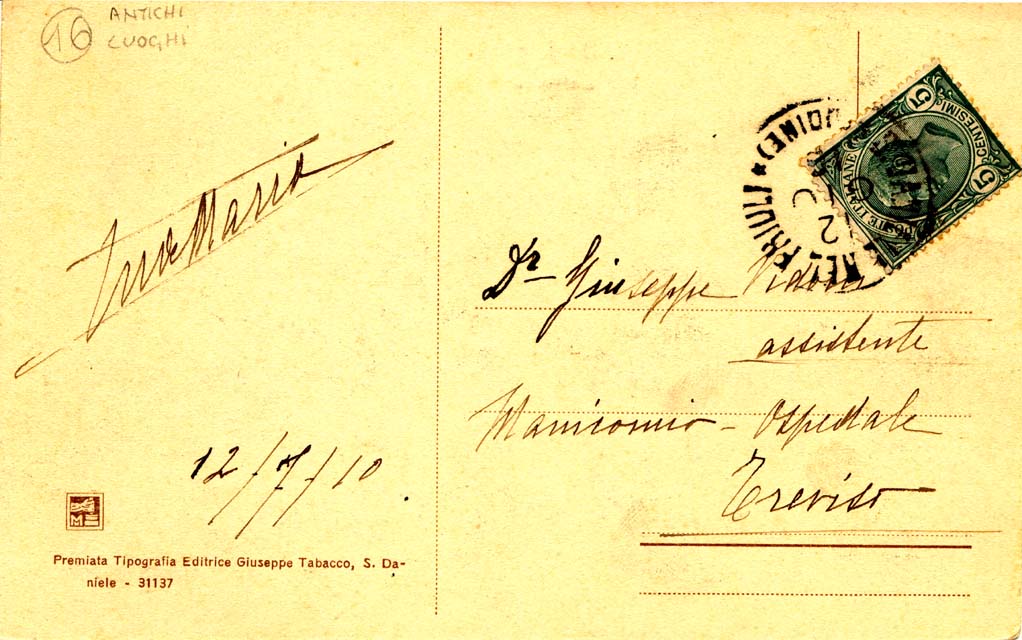 16
ANTICHI
LUOGHI
Maria
12/7/10
M
Premiata Tipografia Editrice Giuseppe Tabacco, S. Da-
niele - 31137
5
CENTESIMI
5
POSTE ITALIANE
NEL FRIULI * (UDINE)
12
Dr Giuseppe
assistente
Manicomio - Ospedale
Treviso